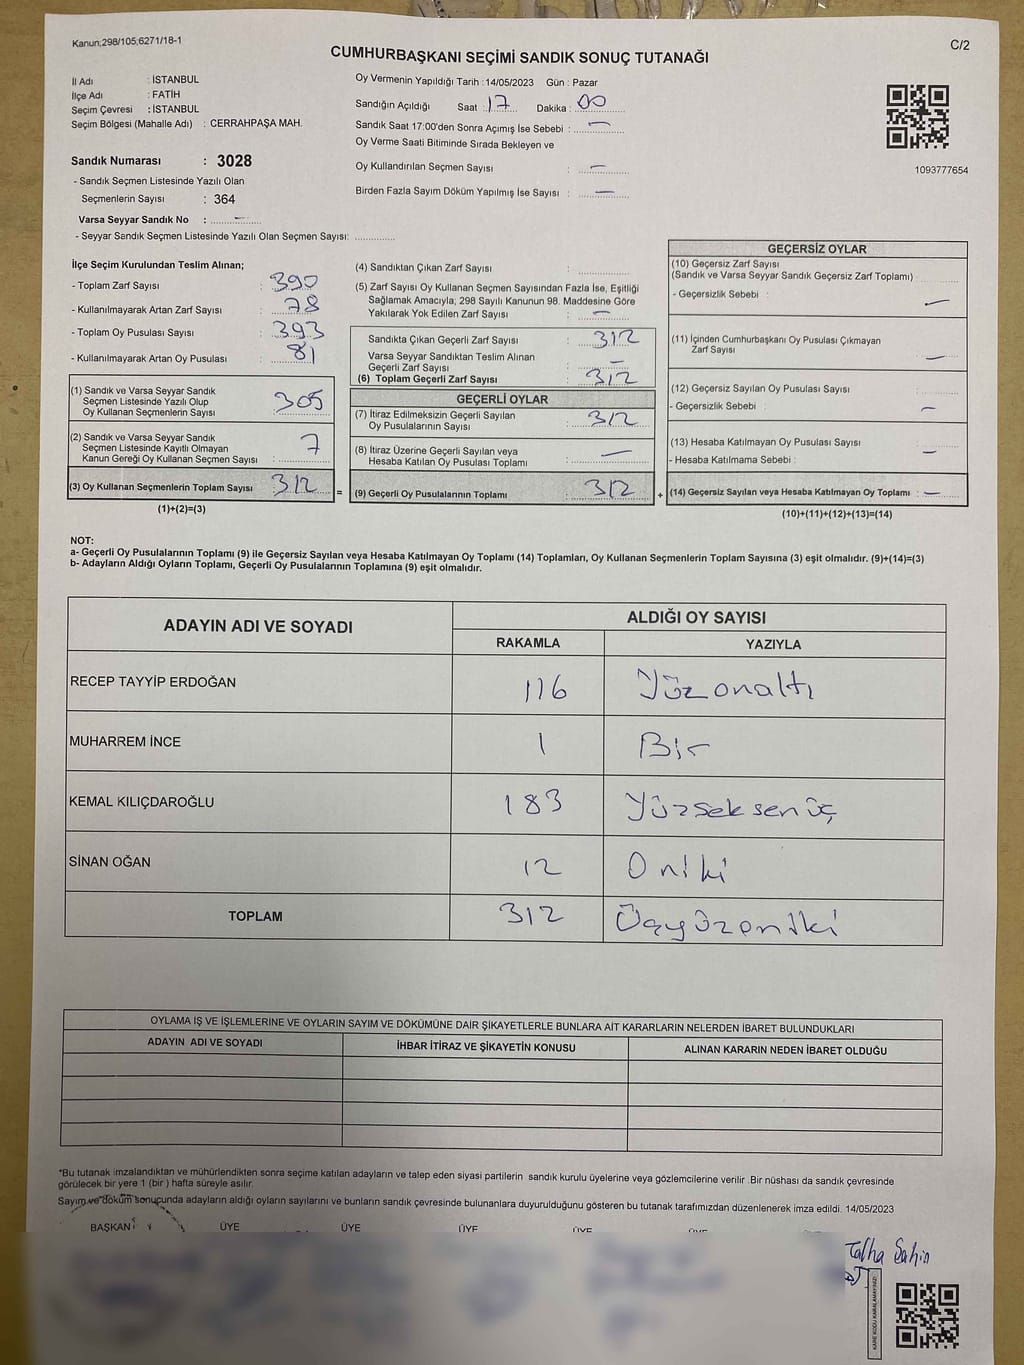 Kanun;298/105;6271/18-1
C/2
CUMHURBAŞKANI SEÇİMİ SANDIK SONUÇ TUTANAĞI
İl Adı : İSTANBUL
İlçe Adı : FATİH
Seçim Çevresi : İSTANBUL
Seçim Bölgesi (Mahalle Adı) : CERRAHPAŞA MAH.
Sandık Numarası : 3028
- Sandık Seçmen Listesinde Yazılı Olan
Seçmenlerin Sayısı : 364
Varsa Seyyar Sandık No : –
- Seyyar Sandık Seçmen Listesinde Yazılı Olan Seçmen Sayısı:
Oy Vermenin Yapıldığı Tarih :14/05/2023 Gün : Pazar
Sandığın Açıldığı Saat : 17 Dakika : 00
Sandık Saat 17:00'den Sonra Açımış İse Sebebi : –
Oy Verme Saati Bitiminde Sırada Bekleyen ve
Oy Kullandırılan Seçmen Sayısı : –
Birden Fazla Sayım Döküm Yapılmış İse Sayısı : –
1093777654
İlçe Seçim Kurulundan Teslim Alınan;
- Toplam Zarf Sayısı : 390
- Kullanılmayarak Artan Zarf Sayısı : 78
- Toplam Oy Pusulası Sayısı : 393
- Kullanılmayarak Artan Oy Pusulası : 81
(1) Sandık ve Varsa Seyyar Sandık
Seçmen Listesinde Yazılı Olup
Oy Kullanan Seçmenlerin Sayısı : 305
(2) Sandık ve Varsa Seyyar Sandık
Seçmen Listesinde Kayıtlı Olmayan
Kanun Gereği Oy Kullanan Seçmen Sayısı : 7
(3) Oy Kullanan Seçmenlerin Toplam Sayısı : 312
(1)+(2)=(3)
=
(4) Sandıktan Çıkan Zarf Sayısı :
(5) Zarf Sayısı Oy Kullanan Seçmen Sayısından Fazla İse, Eşitliği
Sağlamak Amacıyla; 298 Sayılı Kanunun 98. Maddesine Göre
Yakılarak Yok Edilen Zarf Sayısı : –
Sandıkta Çıkan Geçerli Zarf Sayısı : 312
Varsa Seyyar Sandıktan Teslim Alınan
Geçerli Zarf Sayısı : –
(6) Toplam Geçerli Zarf Sayısı : 312
GEÇERLİ OYLAR
(7) İtiraz Edilmeksizin Geçerli Sayılan
Oy Pusulalarının Sayısı : 312
(8) İtiraz Üzerine Geçerli Sayılan veya
Hesaba Katılan Oy Pusulası Toplamı : –
(9) Geçerli Oy Pusulalarının Toplamı : 312
+
GEÇERSİZ OYLAR
(10) Geçersiz Zarf Sayısı
(Sandık ve Varsa Seyyar Sandık Geçersiz Zarf Toplamı)
- Geçersizlik Sebebi : –
(11) İçinden Cumhurbaşkanı Oy Pusulası Çıkmayan
Zarf Sayısı : –
(12) Geçersiz Sayılan Oy Pusulası Sayısı
- Geçersizlik Sebebi : –
(13) Hesaba Katılmayan Oy Pusulası Sayısı
- Hesaba Katılmama Sebebi : –
(14) Geçersiz Sayılan veya Hesaba Katılmayan Oy Toplamı : –
(10)+(11)+(12)+(13)=(14)
NOT:
a- Geçerli Oy Pusulalarının Toplamı (9) ile Geçersiz Sayılan veya Hesaba Katılmayan Oy Toplamı (14) Toplamları, Oy Kullanan Seçmenlerin Toplam Sayısına (3) eşit olmalıdır. (9)+(14)=(3)
b- Adayların Aldığı Oyların Toplamı, Geçerli Oy Pusulalarının Toplamına (9) eşit olmalıdır.
ADAYIN ADI VE SOYADI ALDIĞI OY SAYISI
RAKAMLA YAZIYLA
RECEP TAYYİP ERDOĞAN 116 Yüzonaltı
MUHARREM İNCE 1 Bir
KEMAL KILIÇDAROĞLU 183 Yüzseksenüç
SİNAN OĞAN 12 Oniki
TOPLAM 312 Üçyüzoniki
OYLAMA İŞ VE İŞLEMLERİNE VE OYLARIN SAYIM VE DÖKÜMÜNE DAİR ŞİKAYETLERLE BUNLARA AİT KARARLARIN NELERDEN İBARET BULUNDUKLARI
ADAYIN ADI VE SOYADI İHBAR İTİRAZ VE ŞİKAYETİN KONUSU ALINAN KARARIN NEDEN İBARET OLDUĞU
*Bu tutanak imzalandıktan ve mühürlendikten sonra seçime katılan adayların ve talep eden siyasi partilerin sandık kurulu üyelerine veya gözlemcilerine verilir .Bir nüshası da sandık çevresinde
görülecek bir yere 1 (bir ) hafta süreyle asılır.
Sayım ve döküm sonucunda adayların aldığı oyların sayılarını ve bunların sandık çevresinde bulunanlara duyurulduğunu gösteren bu tutanak tarafımızdan düzenlenerek imza edildi. 14/05/2023
BAŞKAN ÜYE ÜYE ÜYE ÜYE
Talha Şahin
KARE KODU KARALAMAYINIZ!